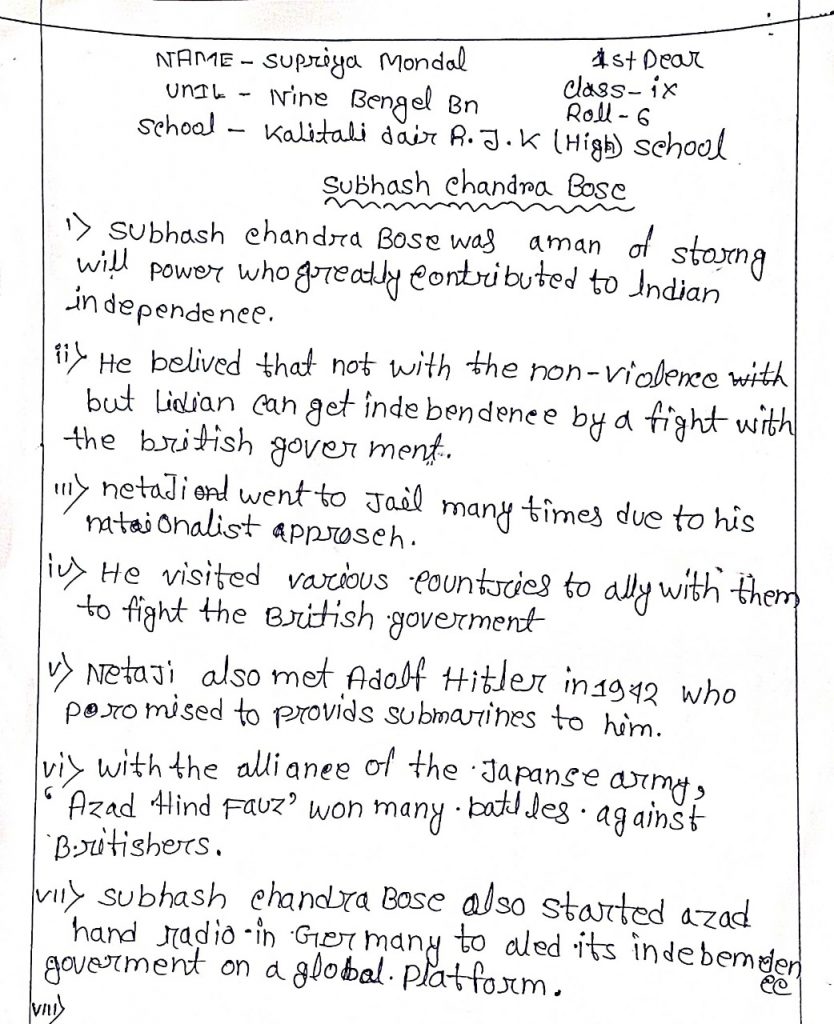 NAME - Supriya Mondal 1st Dear
UNIL - Nine Bengel Bn Class - ix
Roll - 6
School - Kalitali dair R.J.K (High) school
Subhash Chandra Bose
i) Subhash Chandra Bose was aman of storng
will power who greatly contributed to Indian
independence.
ii) He belived that not with the non-violence with
but can get indebendence by a fight with
the british goverment.
iii) netaji went to Jail many times due to his
approseh.
iv) He visited various countries to ally with them
to fight the British goverment
v) Netaji also met Adolf Hitler in 1942 who
poromised to provids submarines to him.
vi) with the alliance of the Japanse army,
'Azad Hind Fauz' won many battles against
Britishers.
vii) Subhash Chandra Bose also started azad
hand radio in Germany to aled its indebemdence
goverment on a global platform.
viii)